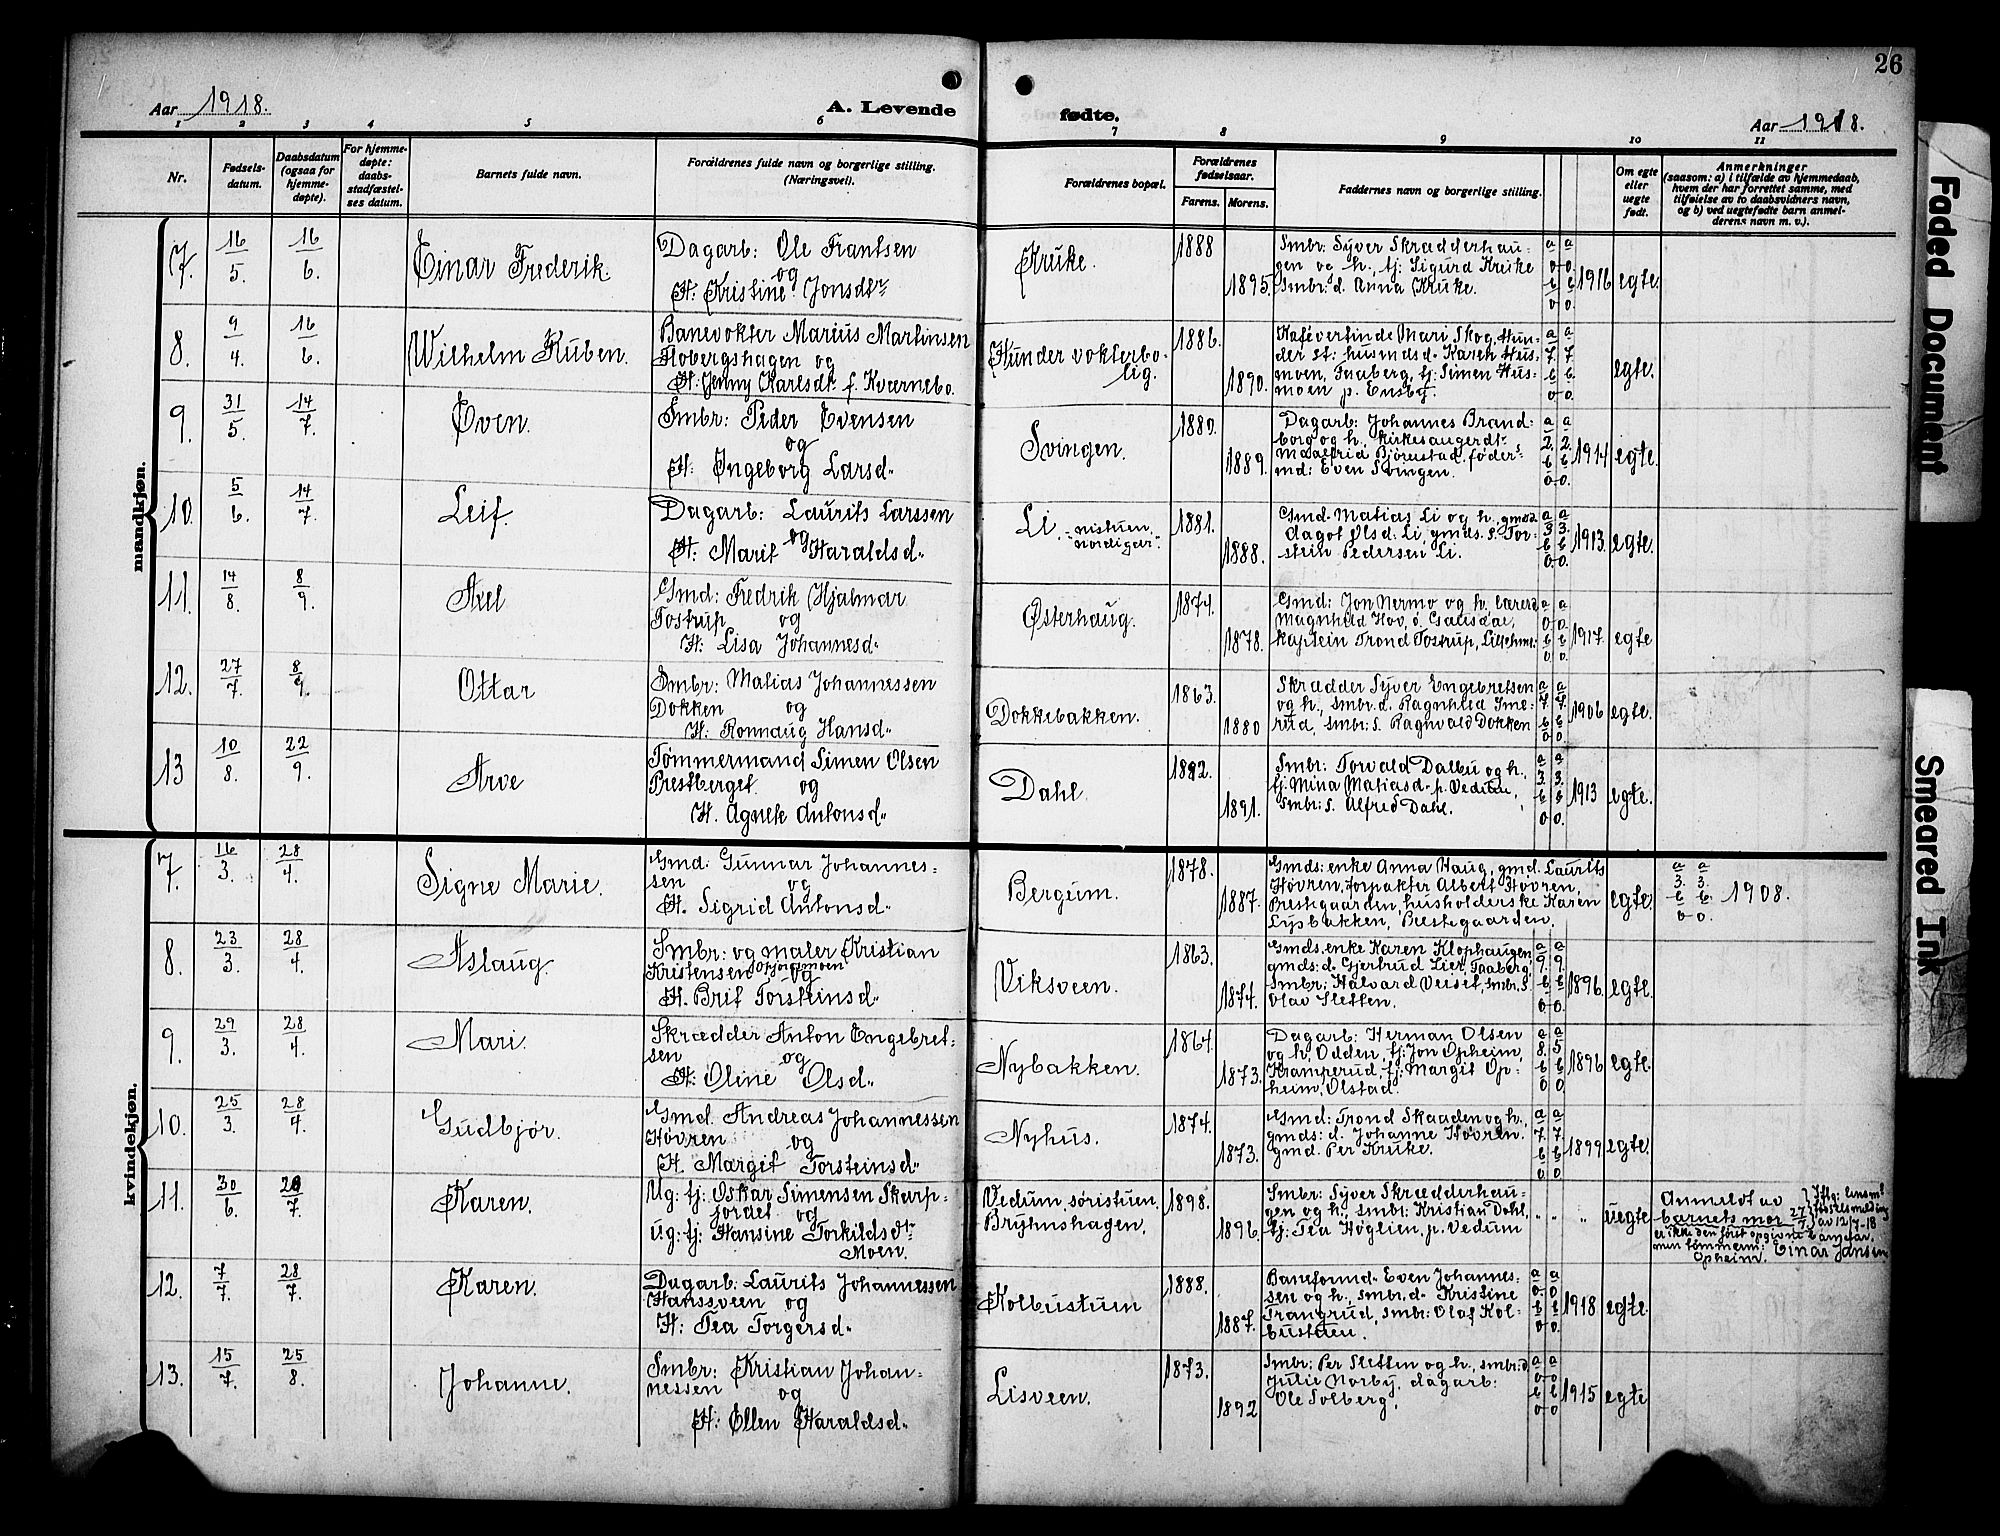 26
Aar 1918.
A. Levende
fødte.
Aar 1918.
1 2 3 4 5 6 7 8 9 10 11
Nr.
Fødsels-
datum.
Daabsdatum
(ogsaa for
hjemme-
døpte).
For hjemme-
døpte:
daabs-
stadfæstel-
ses datum.
Barnets fulde navn.
Forældrenes fulde navn og borgerlige stilling.
(Næringsvei).
Forældrenes bopæl.
Forældrenes
fødselsaar.
Farens. Morens.
Faddernes navn og borgerlige stilling.
Om egte
eller
uegte
født.
Anmerkninger
(saasom: a) i tilfælde av hjemmedaab,
hvem der har forrettet samme, med
tilføielse av to daabsvidners navn,
og b) ved uegtefødte barn anmel-
derens navn m. v.).
mandkjøn.
7. 16/5. 16/6. Einar Frederik.
Dagarb: Ole Frantsen
og
H: Kristine Jonsdtr
Kruke. 1888 1895.
Smbr: Syver Skrædderhau-
gen og h., tj: Sigurd Kruke
Smbr: d. Anna Kruke.
a a
0 0.
b b
0 0.
1916 egte.
8. 9/4. 16/6. Wilhelm Ruben.
Banevokter Marius Martinsen
Flobergshagen og
H: Jenny Karlsdtr f. Kværnebo.
Hunder vokterbo-
lig.
1886. 1890.
Kaféværtinde Mari Skog, Hun-
der st: husmdsd. Karen Hus-
moen, Faaberg, tj: Simen Hus-
moen p. Ensby.
a a
7. 7.
b b
0 0.
egte.
9. 31/5. 14/7. Even.
Smbr: Peder Evensen
og
H: Ingeborg Larsd.
Svingen. 1880. 1889.
Dagarb: Johannes Brand-
borg og h., kirkesangerdtr
Maalfrid Bjørnstad, føder-
md: Even Svingen.
a a
2. 2.
b b
0 0.
1914 egte.
10. 5/6. 14/7. Leif.
Dagarb: Laurits Larssen
og
H: Marit Haraldsd.
Li. nistuen
nordigar.
1881. 1888.
Gmd. Matias Li og h., gmd:d
Dagot Olsd: Li, gmds: s. Tor-
stein Pedersen Li.
a a
3. 3.
b b
0. 0.
1913. egte.
11. 14/8. 8/9. Axel
Gmd: Fredrik Hjalmar
Tostrup og
H: Lisa Johannesd.
Østerhaug. 1874. 1878.
Gmd: Jon Nermo og h., lærerd
Magnhild Hov, ø. Gausdal,
kaptein Trond Tostrup, Lillehmr:
a a
0 0.
b b
0 0.
1917. egte
12. 27/7. 8/9. Ottar
Smbr: Matias Johannessen
Dokken og
H: Rønnaug Hansd.
Dokkebakken. 1863. 1880
Skrædder Syver Engebretsen
og h., smbr:d. Ragnhild Ime-
rud, smbr: s. Ragnvald Dokken
a a
7. 7.
b b
0 0.
1906 egte.
13 10/8. 22/9. Arve
Tømmermand Simen Olsen
Prestberget og
H. Agnete Antonsd.
Dahl. 1892. 1891.
Smbr: Torvald Dalbu og h.,
tj: Mina Matiasd. p. Vedum,
Smbr: s. Alfred Dahl.
a a
3. 3.
b b
0 0.
1913 egte.
kvindekjøn.
7. 16/3. 28/4. Signe Marie.
Gmd: Gunnar Johannes-
sen og
H. Sigrid Antonsd.
Bergum. 1878. 1887.
Gmds: enke Anna Haug, gmd. Laurits
Høvren, forpakter Albert Høvren,
Prestegaarden, husholderske Karen
Lysbakken, Prestegaarden.
egte.
a a
3. 3.
b b.
0 0.
1908.
8. 23/3. 28/4. Aslaug.
Smbr: og maler Kristian
Kristensen og
H. Brit Torsteinsd.
Viksveen. 1863. 1874.
Gmds: enke Karen Klophaugen,
gmds: d. Gjertrud Lier, Faaberg.
Smbr: Halvard Veiset, smbr. s.
Olav Sletten.
a a
9. 9.
b b
0 0.
1896. egte.
9. 29/3. 28/4. Mari.
Skrædder Anton Engebret-
sen og
H: Oline Olsd.
Nybakken. 1864. 1873.
Dagarb: Herman Olsen
og h. Odden, tj: Jon Opheim,
Kramperud, tj: Margit Op-
heim, Olstad.
a a
8. 5
b b
0 0.
1896 egte.
10. 25/3. 28/4. Gudbjør.
Gmd. Andreas Johannessen
Høvren og
H. Margit Torsteinsd.
Nyhus. 1874. 1873.
Gmd: Trond Skaaden og h.,
gmds: d. Johanne Høvren.
gmd. Per Kruke.
a a
7. 7.
b b
0 0.
1899 egte.
11. 30/6. 28/7. Karen.
Ug: tj: Oskar Simensen Skarp-
jordet og
ug: tj: Hansine Torkildsdtr
Moen.
Vedum, søristuen.
Bryhnshagen.
1898. 1896.
Smbr: Syver Skrædderhau-
gen og h., smbr: Kristian Dahl,
tj: Tea Høglien, p. Vedum
" " "
uegte
Anmeldt av
barnets mor 27/7.
Iflg: lensm:
fødselsmelding
av 12/7-18
er ikke den først opgivne barnefar,
men tømmerm: Einar Jansen
Opheim.
12. 7/7. 28/7. Karen.
Dagarb: Laurits Johannessen
Hanssveen og
H: Tea Torgersd.
Kolbustuen 1888. 1887.
Baneformd. Even Johannes-
sen og h., smbr.d. Kristine
Trangrud, smbr: Olaf Kol-
bustuen.
a a
0. 0
b b
0 0.
1918 egte.
13. 15/7. 25/8. Johanne.
Smbr: Kristian Johan-
nessen og
H: Ellen Haraldsd.
Lisveen. 1873. 1892
Smbr: Per Sletten og h., smbr:d
Julie Norby, dagarb:
Ole Solberg.
a a
0 0
b b
0 0.
1915 egte.
Faded Document
Smeared Ink